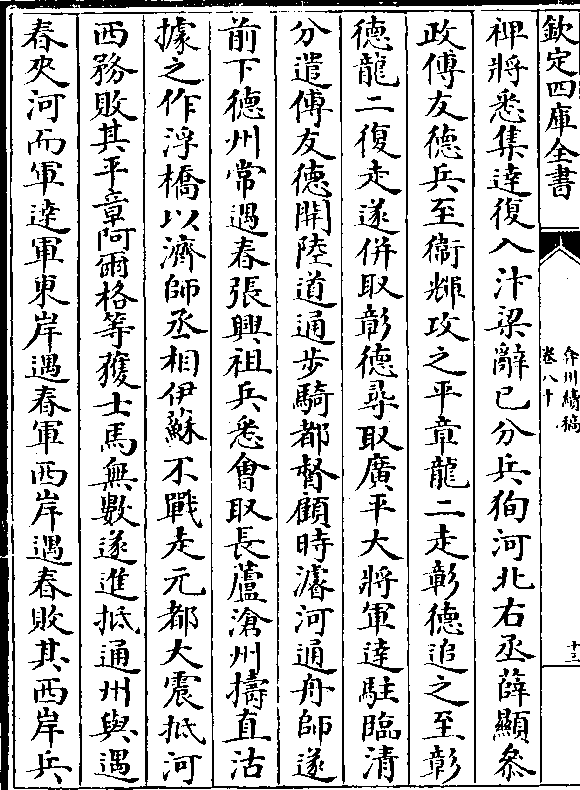 欽定四庫全書
弇州續稿
卷八十
十三
裨將悉集達復入汴梁辭已分兵狥河北右丞薛顯叅
政傅友德兵至衞輝攻之平章龍二走彰德追之至彰
德龍二復走遂併取彰德尋取廣平大將軍達駐臨清
分遣傅友德開陸道通步騎都督顧時濬河通舟師遂
前下德州常遇春張興祖兵悉會取長蘆滄州擣直沽
據之作浮橋以濟師丞相伊蘇不戰走元都大震抵河
西務敗其平章阿爾格等獲士馬無數遂進抵通州與遇
春夾河而軍達軍東岸遇春軍西岸遇春敗其西岸兵